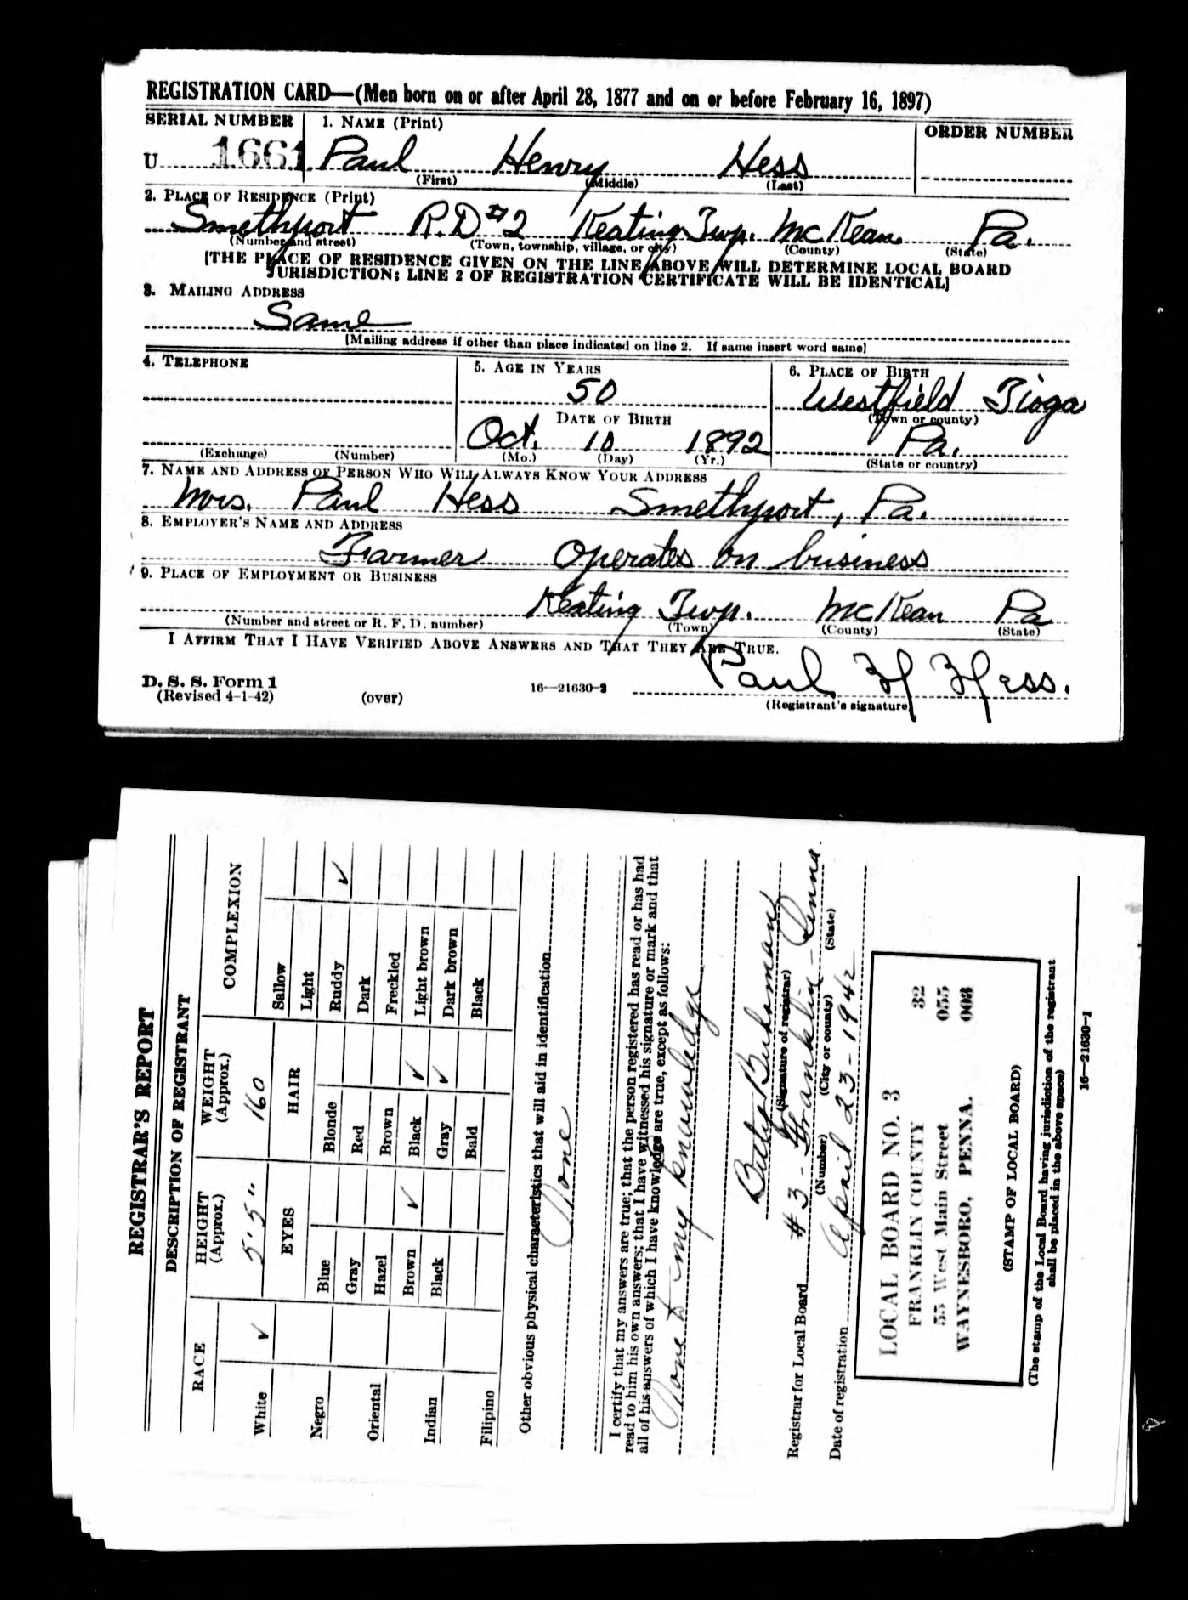 REGISTRATION CARD—(Men born on or after April 28, 1877 and on or before February 16, 1897)
SERIAL NUMBER 1. NAME (Print) ORDER NUMBER
U 1661 Paul Henry Hess
(First) (Middle) (Last)
2. PLACE OF RESIDENCE (Print)
Smethport R.D #2 Keating Twp. McKean Pa.
(Number and street) (Town, township, village, or city) (County) (State)
[THE PLACE OF RESIDENCE GIVEN ON THE LINE ABOVE WILL DETERMINE LOCAL BOARD
JURISDICTION; LINE 2 OF REGISTRATION CERTIFICATE WILL BE IDENTICAL]
3. MAILING ADDRESS
Same
[Mailing address if other than place indicated on line 2. If same insert word same]
4. TELEPHONE 5. AGE IN YEARS 6. PLACE OF BIRTH
50 Westfield Tioga
DATE OF BIRTH (Town or county)
Oct. 10 1892 Pa.
(Exchange) (Number) (Mo.) (Day) (Yr.) (State or country)
7. NAME AND ADDRESS OF PERSON WHO WILL ALWAYS KNOW YOUR ADDRESS
Mrs. Paul Hess Smethport, Pa.
8. EMPLOYER'S NAME AND ADDRESS
Farmer Operates on business
9. PLACE OF EMPLOYMENT OR BUSINESS
Keating Twp. McKean Pa
(Number and street or R. F. D. number) (Town) (County) (State)
I AFFIRM THAT I HAVE VERIFIED ABOVE ANSWERS AND THAT THEY ARE TRUE.
Paul H Hess.
D. S. S. Form 1
(Revised 4-1-42) (over) 16—21630-2 (Registrant's signature)
REGISTRAR'S REPORT
DESCRIPTION OF REGISTRANT
RACE HEIGHT (Approx.) WEIGHT (Approx.) COMPLEXION
White ✓ 5'5" 160 Sallow
EYES HAIR Light
Negro Blue Blonde Ruddy ✓
Gray Red Dark
Oriental Hazel Brown Freckled
Indian Brown ✓ Black ✓ Light brown
Black Gray ✓ Dark brown
Filipino Bald Black
Other obvious physical characteristics that will aid in identification
None
I certify that my answers are true; that the person registered has read or has had
read to him his own answers; that I have witnessed his signature or mark and that
all of his answers of which I have knowledge are true, except as follows:
None to my knowledge
Betty
(Signature of registrar)
Registrar for Local Board #3 - Franklin - Penna.
(Number) (City or county) (State)
Date of registration April 23-1942
LOCAL BOARD NO. 3
FRANKLIN COUNTY 32
55 West Main Street 055
WAYNESBORO, PENNA. 003
(STAMP OF LOCAL BOARD)
(The stamp of the Local Board having jurisdiction of the registrant
shall be placed in the above space)
16—21630-1